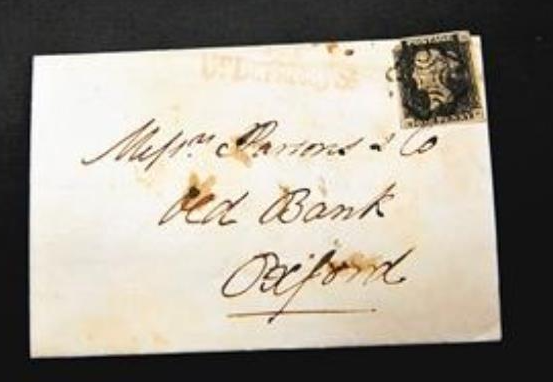 POSTAGE
Messrs Parsons & Co
Old Bank
Oxford